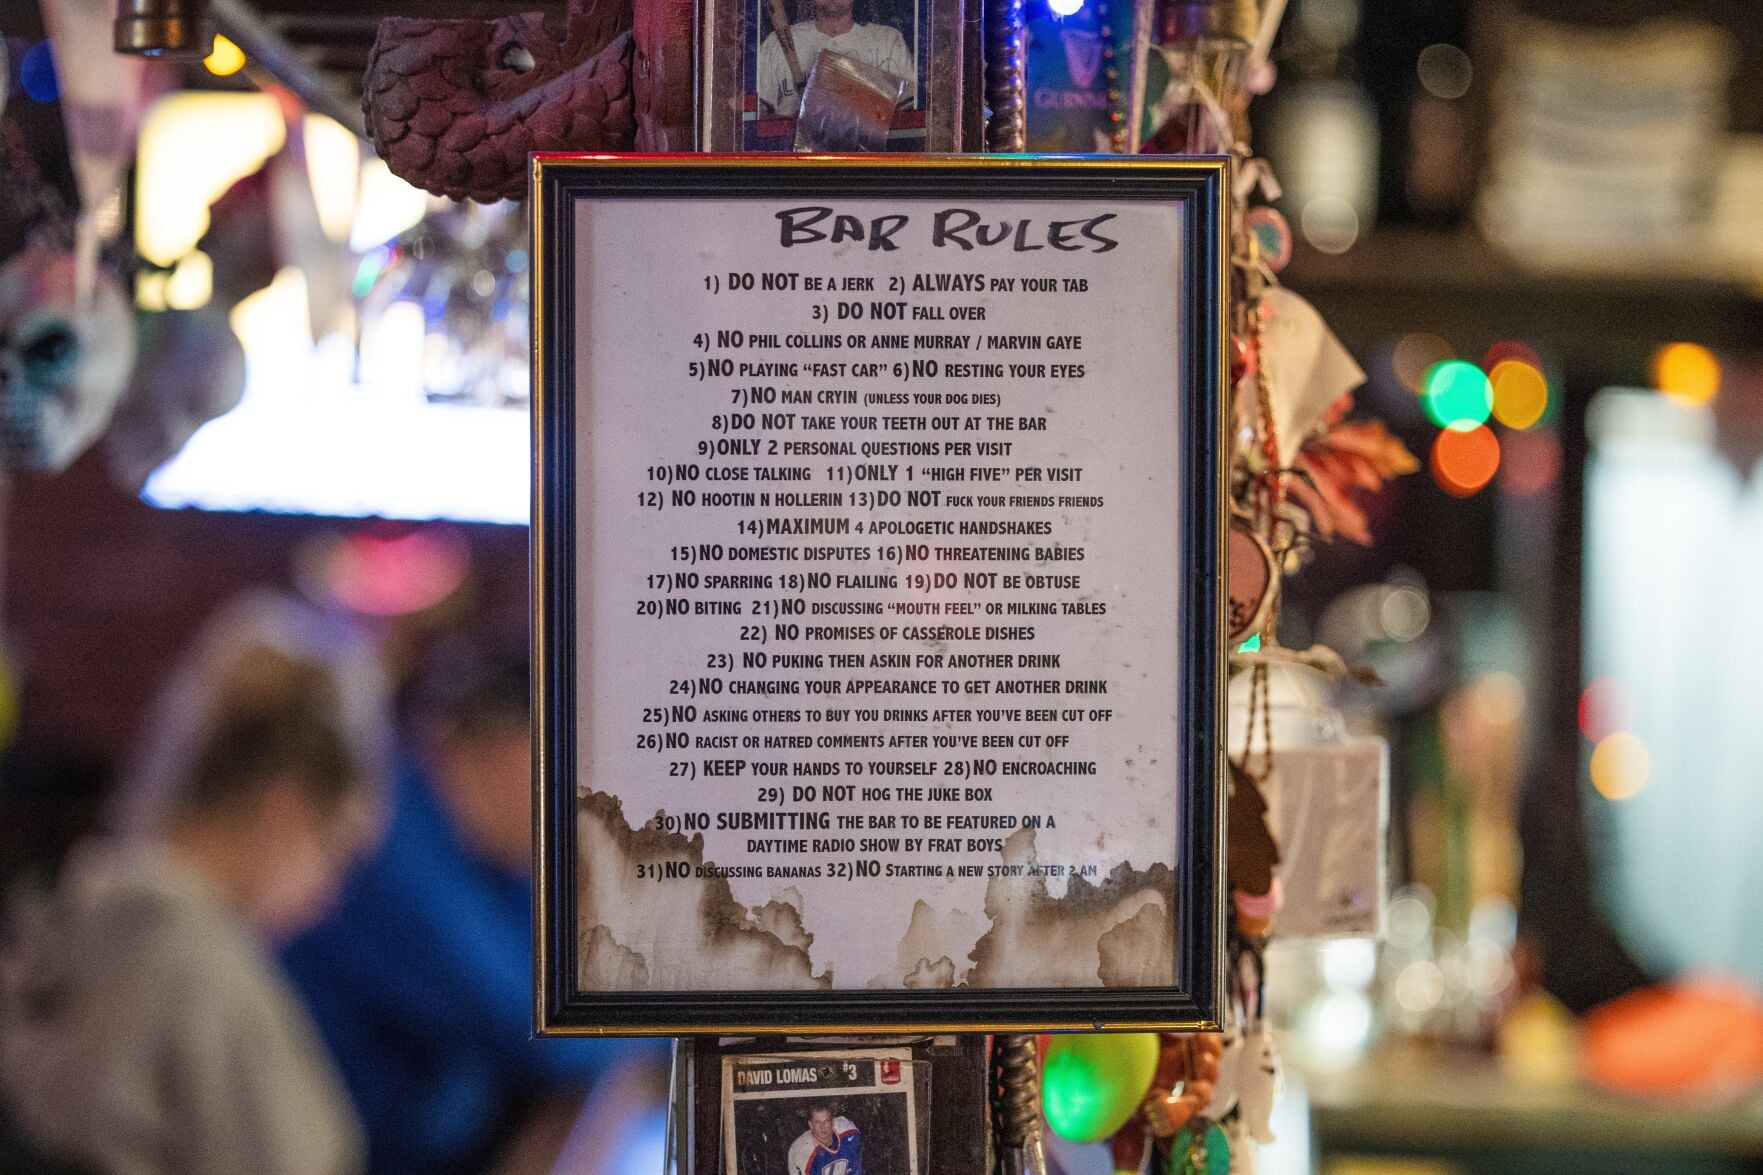 GUINNESS
BAR RULES
1) DO NOT BE A JERK 2) ALWAYS PAY YOUR TAB
3) DO NOT FALL OVER
4) NO PHIL COLLINS OR ANNE MURRAY / MARVIN GAYE
5) NO PLAYING “FAST CAR” 6) NO RESTING YOUR EYES
7) NO MAN CRYIN (UNLESS YOUR DOG DIES)
8) DO NOT TAKE YOUR TEETH OUT AT THE BAR
9) ONLY 2 PERSONAL QUESTIONS PER VISIT
10) NO CLOSE TALKING 11) ONLY 1 “HIGH FIVE” PER VISIT
12) NO HOOTIN N HOLLERIN 13) DO NOT FUCK YOUR FRIENDS FRIENDS
14) MAXIMUM 4 APOLOGETIC HANDSHAKES
15) NO DOMESTIC DISPUTES 16) NO THREATENING BABIES
17) NO SPARRING 18) NO FLAILING 19) DO NOT BE OBTUSE
20) NO BITING 21) NO DISCUSSING “MOUTH FEEL” OR MILKING TABLES
22) NO PROMISES OF CASSEROLE DISHES
23) NO PUKING THEN ASKIN FOR ANOTHER DRINK
24) NO CHANGING YOUR APPEARANCE TO GET ANOTHER DRINK
25) NO ASKING OTHERS TO BUY YOU DRINKS AFTER YOU’VE BEEN CUT OFF
26) NO RACIST OR HATRED COMMENTS AFTER YOU’VE BEEN CUT OFF
27) KEEP YOUR HANDS TO YOURSELF 28) NO ENCROACHING
29) DO NOT HOG THE JUKE BOX
30) NO SUBMITTING THE BAR TO BE FEATURED ON A
DAYTIME RADIO SHOW BY FRAT BOYS
31) NO DISCUSSING BANANAS 32) NO STARTING A NEW STORY AFTER 2 AM
DAVID LOMAS #3